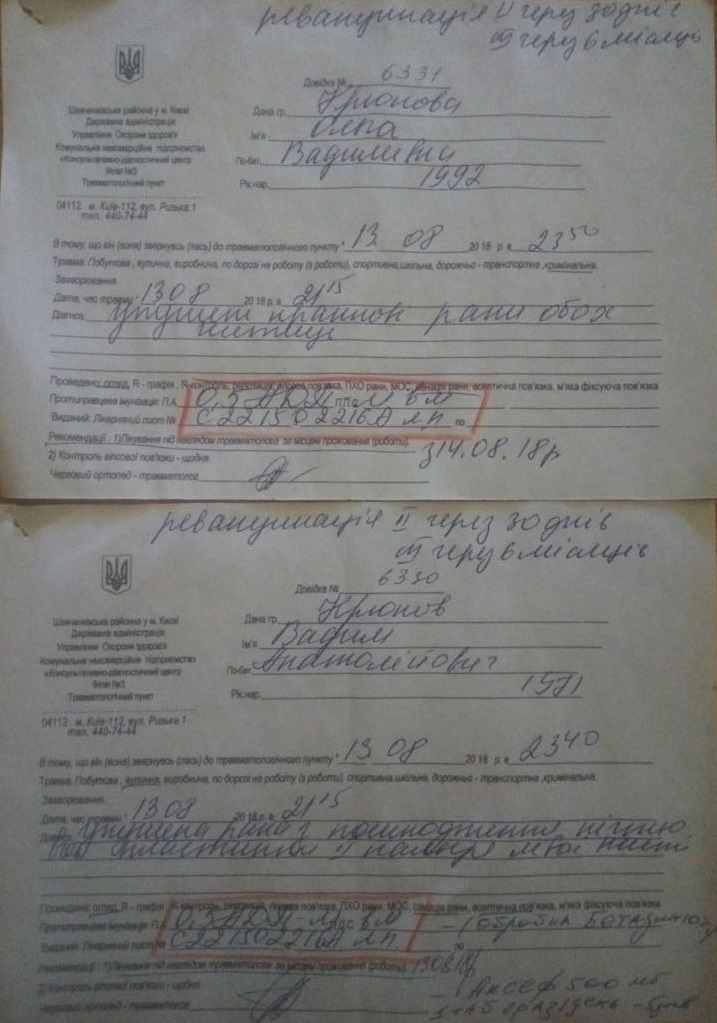 ревакцинація II через 30 днів
III через 6 місяців
Довідка № 6331
Шевченківська районна у м. Києві
Державна адміністрація
Управління Охорони здоров'я
Комунальне некомерційне підприємство
«Консультативно-діагностичний центр
Філія №3
Травматологічний пункт
04112 м. Київ-112, вул. Ризька 1
тел. 440-74-44
Дана гр. Крюкова
Ім'я
По-бат. Вадимівна
Рік.нар. 1992
В тому, що він (вона) звернувсь (лась) до травматологічного пункту " 13. 08 2018 р. в 23 50
Травма: Побутова, вулична, виробнича, по дорозі на роботу (з роботи), спортивна, шкільна, дорожньо - транспортна, кримінальна.
Захворювання
Дата, час травми 13 08 2018 р. в 21 15
Діагноз: укушені рани обох
кистиць
Проведено: огляд, R - графія, R-контроль, репозиція, гіпсова пов'язка, ПХО рани, МОС, санація рани, асептична пов'язка, м'яка фіксуюча пов'язка
Протиправцева імунізація: П.А. 0,5 АДП М в м
Виданий: Лікарняний лист № С221502216А л.п. по
Рекомендації: 1) Лікування під наглядом травматолога за місцем проживання (роботи). з 14.08.18р
2) Контроль гіпсової пов'язки - щодня
Черговий ортопед - травматолог
ревакцинація II через 30 днів
III через 6 місяців
Довідка № 6330
Шевченківська районна у м. Києві
Державна адміністрація
Управління Охорони здоров'я
Комунальне некомерційне підприємство
«Консультативно-діагностичний центр
Філія №3
Травматологічний пункт
04112 м. Київ-112, вул. Ризька 1
тел. 440-74-44
Дана гр. Крюков
Ім'я Вадим
По-бат. Анатолійович
Рік.нар. 1971
В тому, що він (вона) звернувсь (лась) до травматологічного пункту " 13. 08 2018 р. в 23 40
Травма: Побутова, вулична, виробнича, по дорозі на роботу (з роботи), спортивна, шкільна, дорожньо - транспортна, кримінальна.
Захворювання
Дата, час травми 13 08 2018 р. в 21 15
укушена рана з пошкодження нігтьо
вої пластинки II пальця лівої кисті
Проведено: огляд, R - графія, R-контроль, репозиція, гіпсова пов'язка, ПХО рани, МОС, санація рани, асептична пов'язка, м'яка фіксуюча пов'язка
Протиправцева імунізація: П.А. 0,5 АДП-М в м - (обробка бетадин
Виданий: Лікарняний лист № С221502216А л.п. по
Рекомендації: 1) Лікування під наглядом травматолога за місцем проживання (роботи).
2) Контроль гіпсової пов'язки - щодня - Аксеф 500 мг
Черговий ортопед - травматолог 1 таб